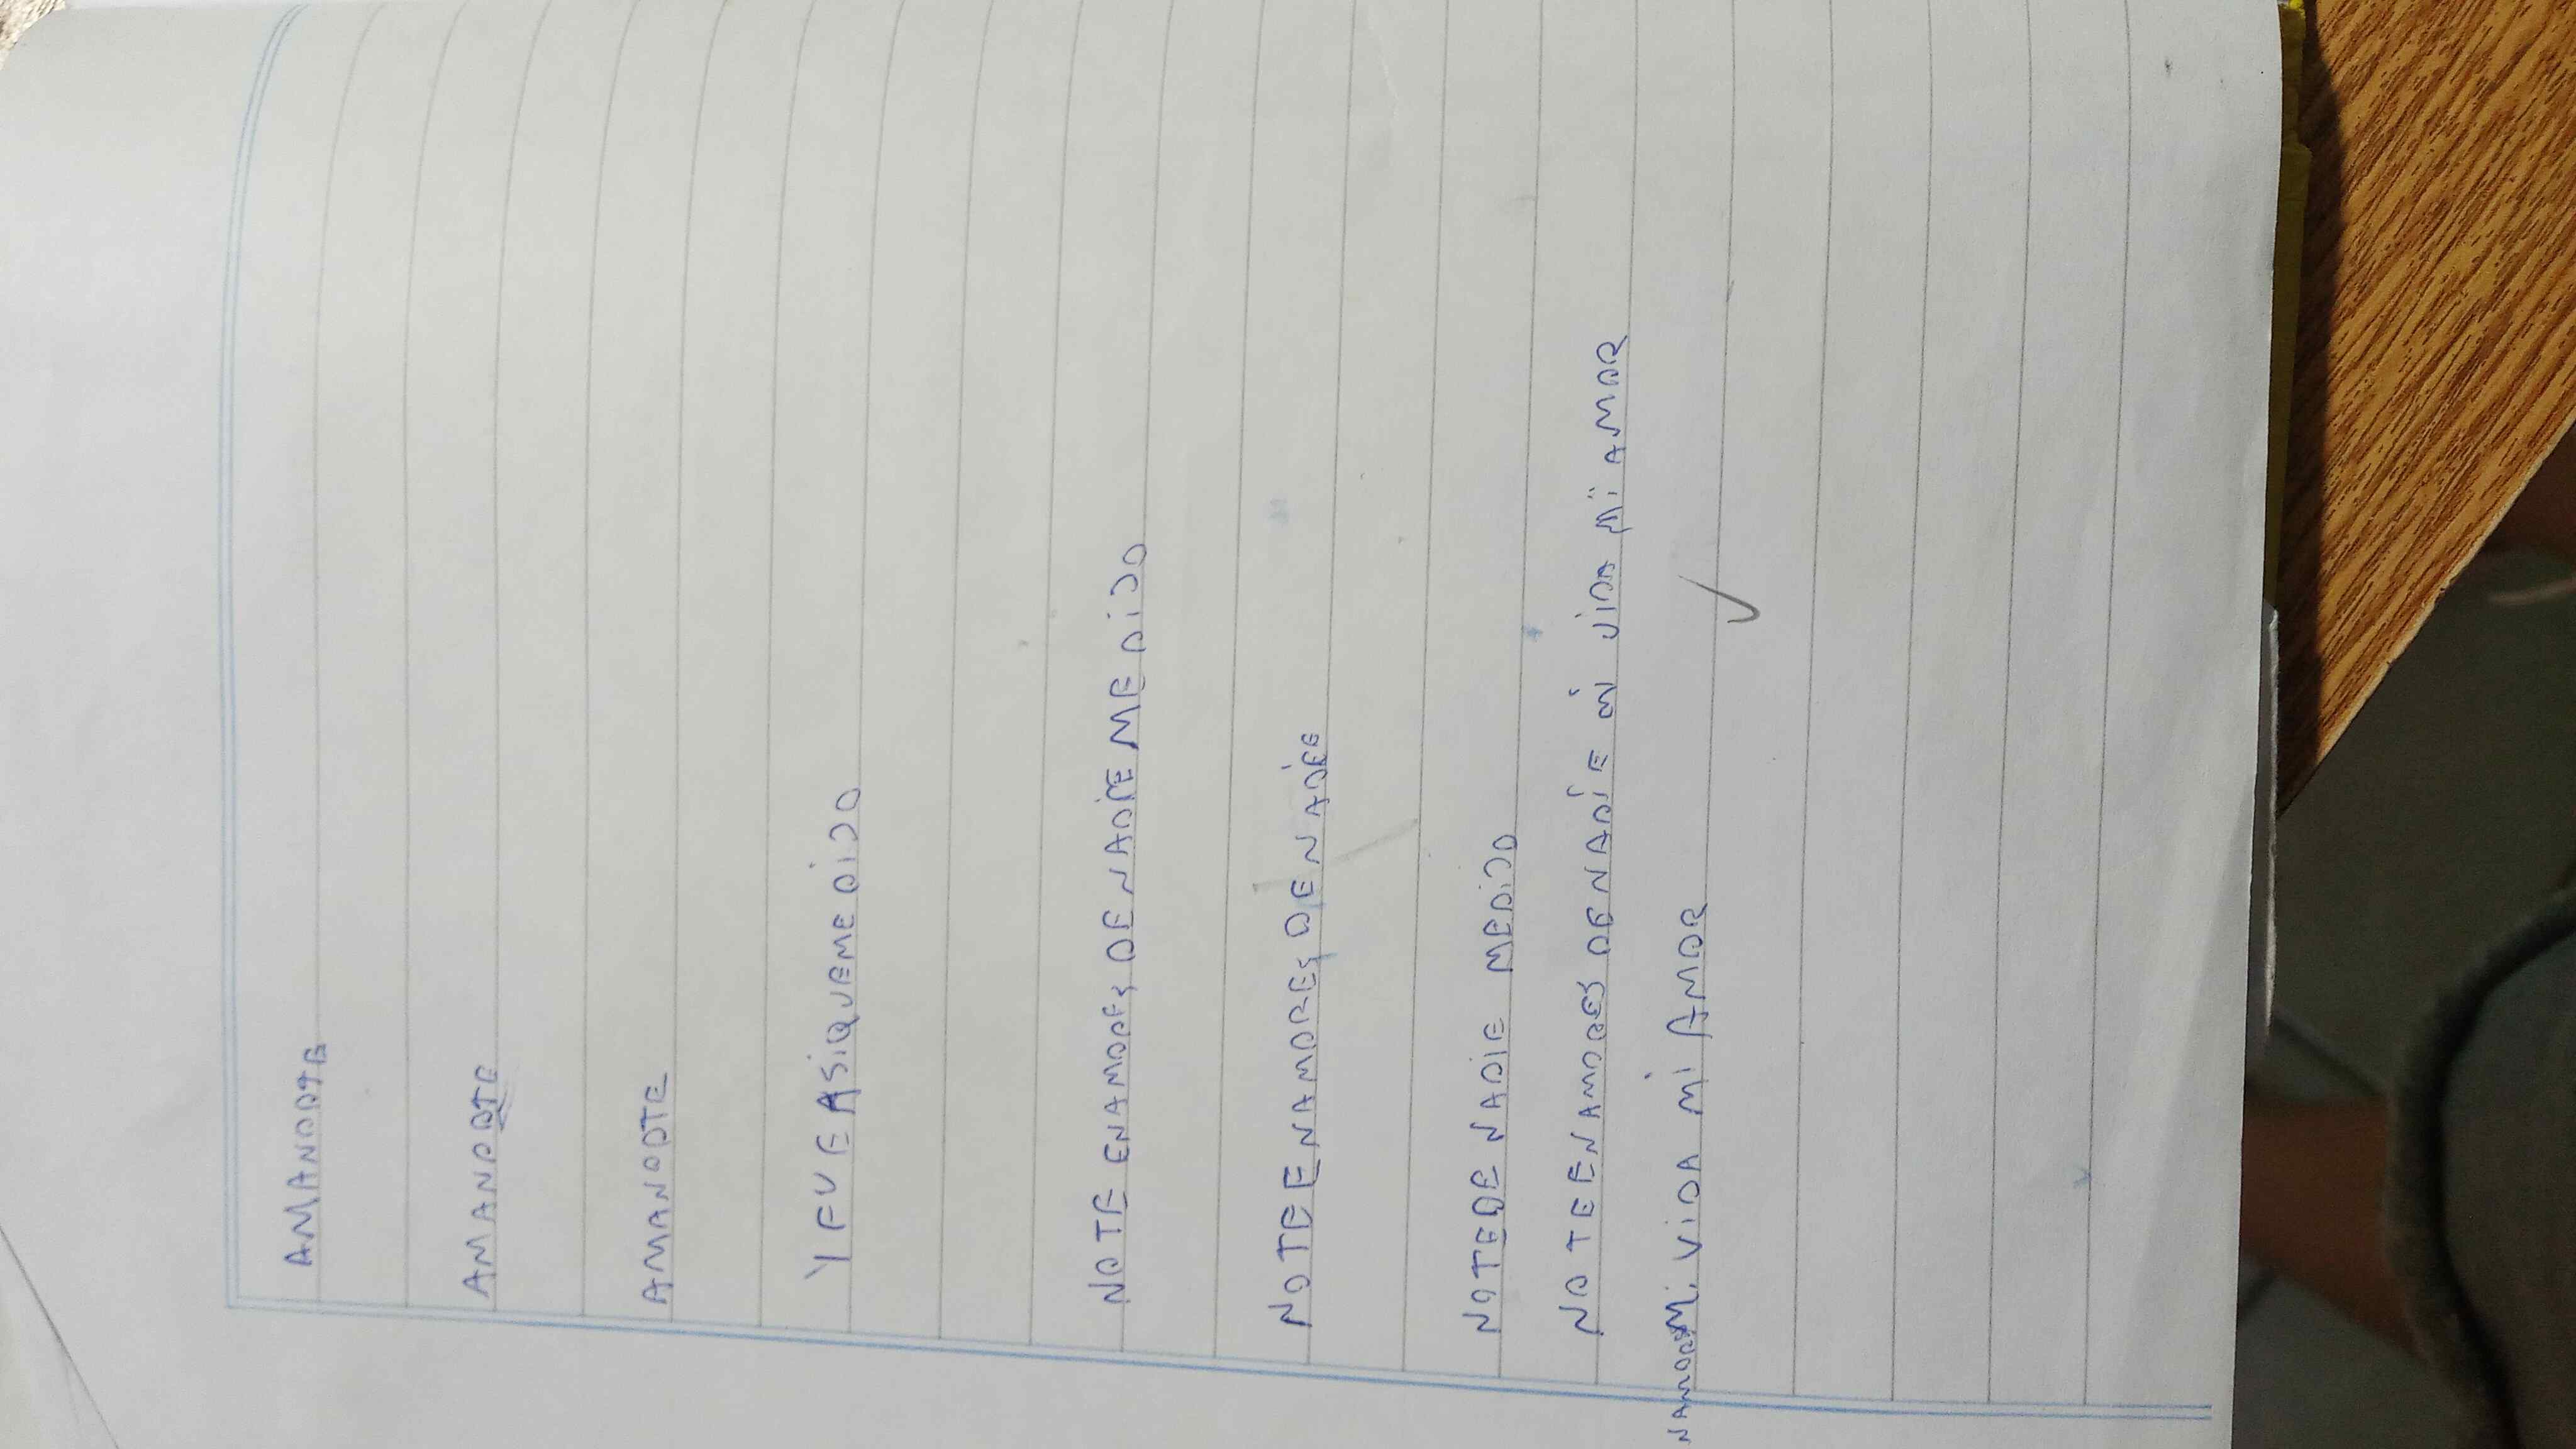 AMANDOTE
AMANDOTE
AMANDOTE
Y FUE ASiQUEMEDiJO
NOTE ENAMORES DE NADiE ME DiJO
NOTE ENAMORES DE NADiE
NOTEDE NADIE MEDiJO
NO TEENAMORES DENADiE Mi ViDA Mi AMOR
NAMORA Mi ViDA Mi AMOR